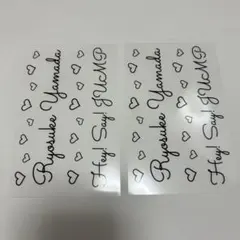 Ryosuke Yamada
Hey! Say! JUMP
Ryosuke Yamada
Hey! Say! JUMP